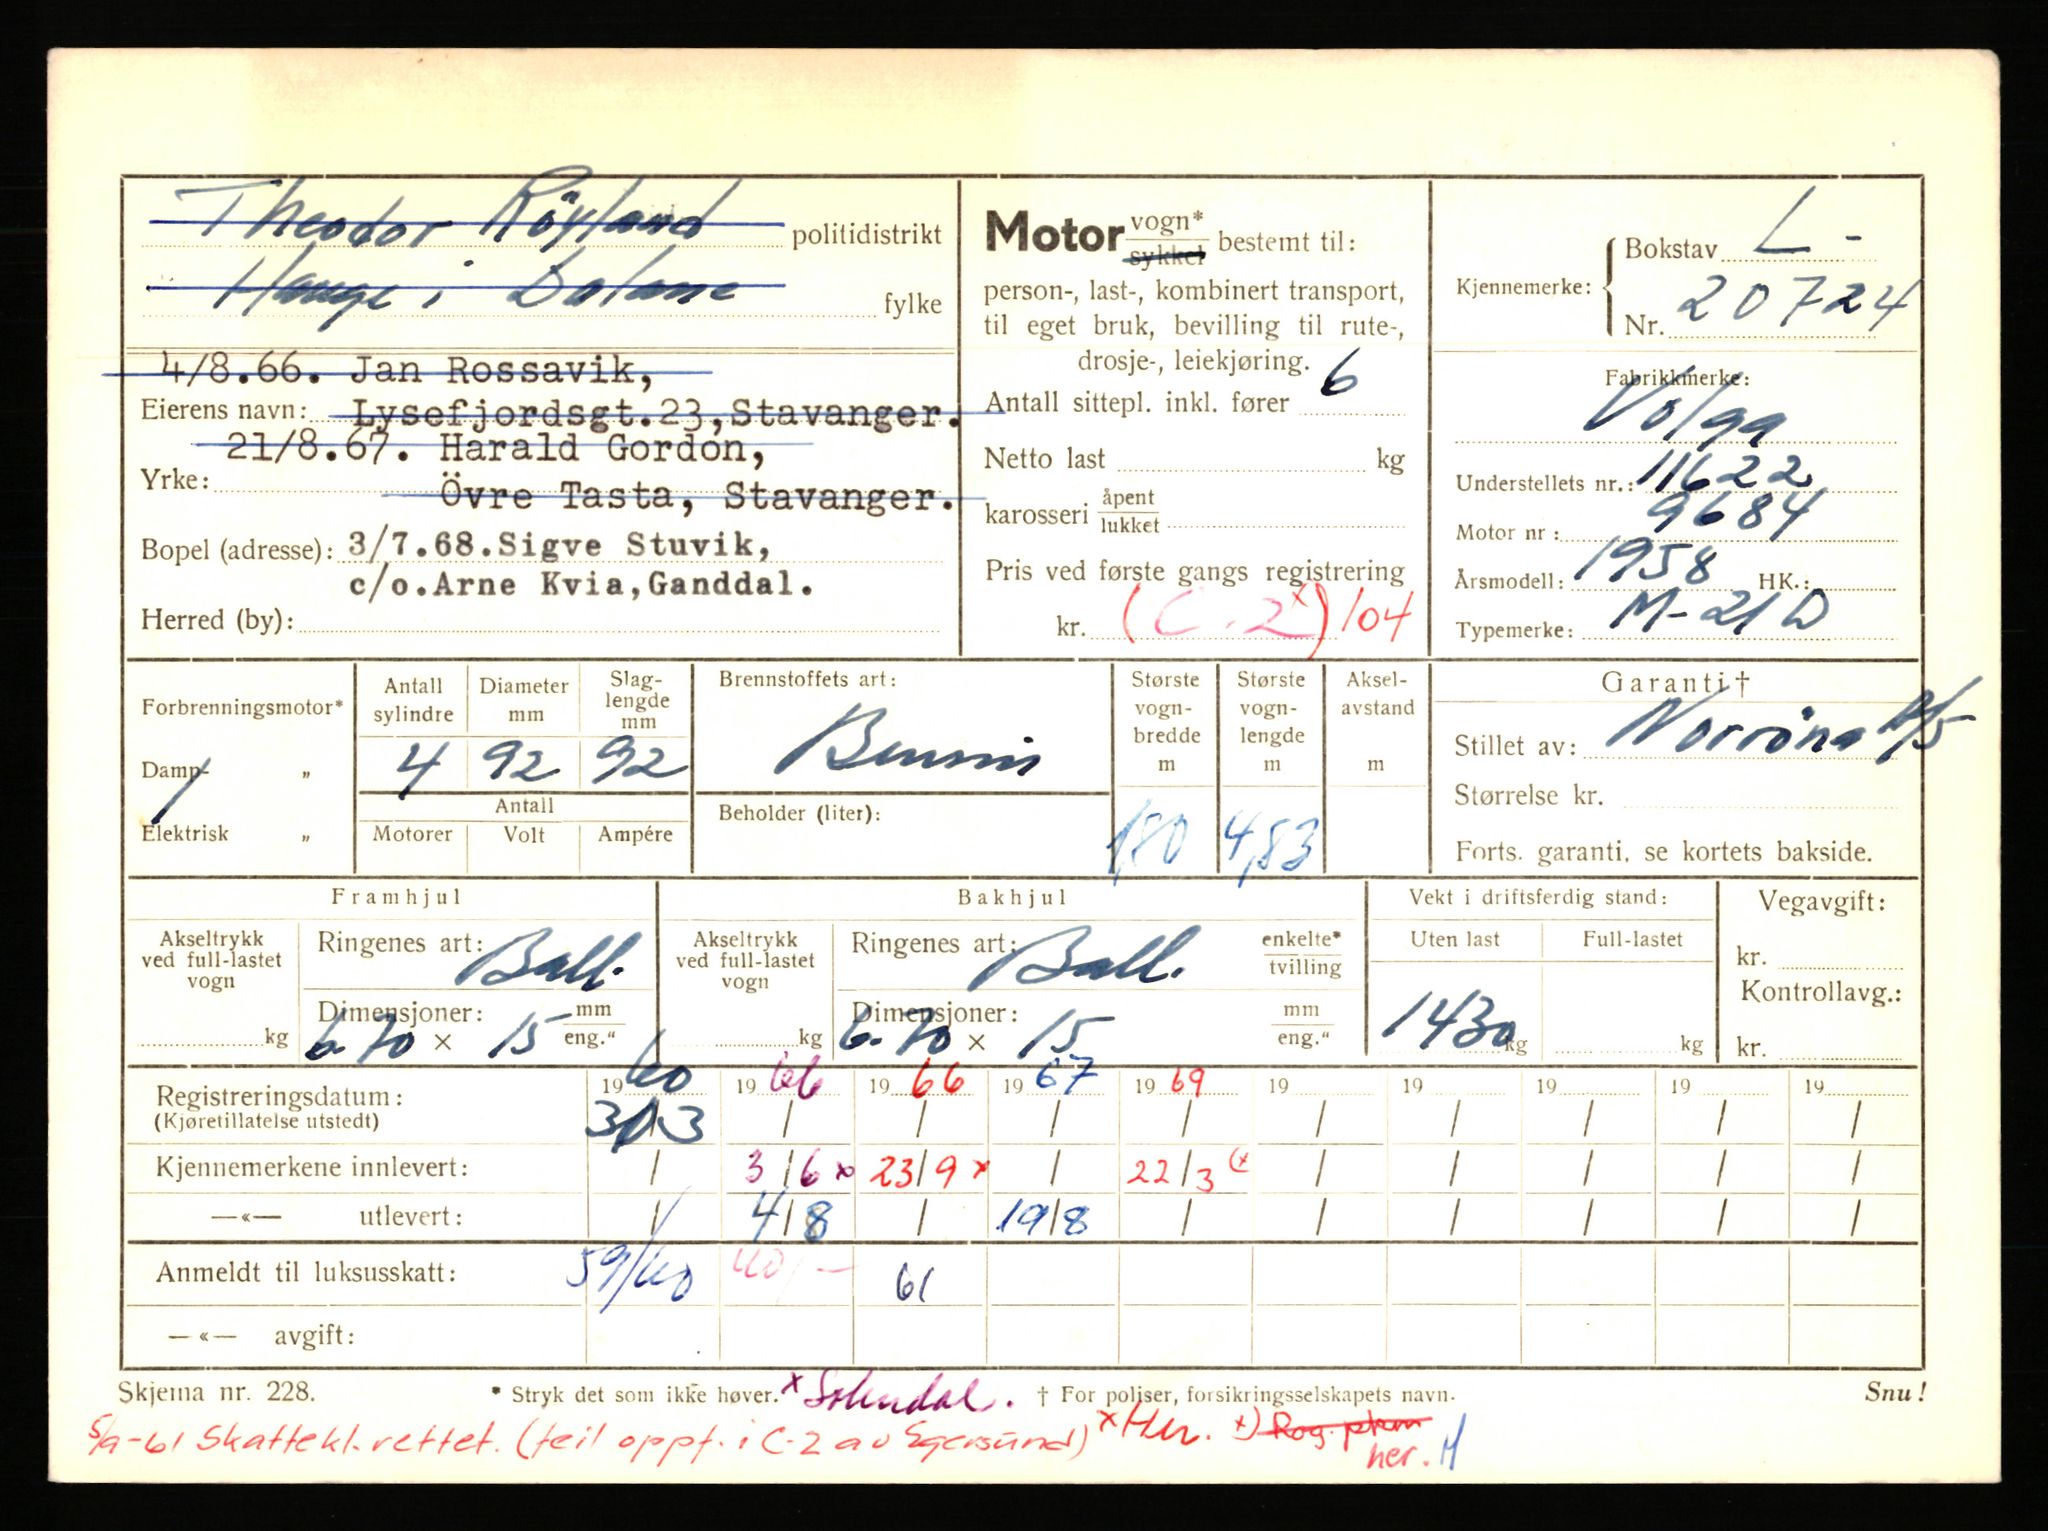 Theodor Röyland politidistrikt
Hauge i Dalane fylke
4/8.66. Jan Rossavik,
Eierens navn: Lysefjordsgt.23, Stavanger.
21/8.67. Harald Gordon,
Yrke: Övre Tasta, Stavanger.
Bopel (adresse): 3/7.68. Sigve Stuvik,
c/o. Arne Kvia, Ganddal.
Herred (by):
Motor vogn* / sykkel bestemt til:
person-, last-, kombinert transport,
til eget bruk, bevilling til rute-,
drosje-, leiekjøring.
Antall sittepl. inkl. fører 6
Netto last kg
karosseri åpent / lukket
Pris ved første gangs registrering
kr. (C.2 x) 104
Kjennemerke: Bokstav L -
Nr. 20724
Fabrikkmerke:
Volga
Understellets nr.: 11622
Motor nr: 9684
Årsmodell: 1958 HK.:
Typemerke: M-21 D
Forbrenningsmotor*
Damp- „
Elektrisk „
Antall sylindre Diameter mm Slaglengde mm
4 92 92
Antall
Motorer Volt Ampére
Brennstoffets art:
Bensin
Beholder (liter):
Største vognbredde m
1,80
Største vognlengde m
4,83
Akselavstand m
Garanti †
Stillet av: Norröna A/S
Størrelse kr.
Forts. garanti, se kortets bakside.
Framhjul
Akseltrykk ved full-lastet vogn
kg
Ringenes art: Ball.
Dimensjoner: mm / eng."
6.70 x 15
Bakhjul
Akseltrykk ved full-lastet vogn
kg
Ringenes art: Ball. enkelte* / tvilling
Dimensjoner: mm / eng."
6.70 x 15
Vekt i driftsferdig stand:
Uten last Full-lastet
1430 kg kg
Vegavgift:
kr.
Kontrollavg.:
kr.
1960 1966 1966 1967 1969 19 19 19 19 19
Registreringsdatum: 30/3 / / / / / / / / /
(Kjøretillatelse utstedt)
Kjennemerkene innlevert: / 3/6 x 23/9 x / 22/3 (x / / / / /
—«— utlevert: / 4/8 / 19/8 / / / / / /
Anmeldt til luksusskatt: 59/60 60/- 61
—«— avgift:
Skjema nr. 228. * Stryk det som ikke høver. x Solundal. † For poliser, forsikringsselskapets navn. Snu!
5/9-61 Skattekl. rettet. (feil oppf. i C-2 av Egersund) x Her. x) Rog. phm
her. M